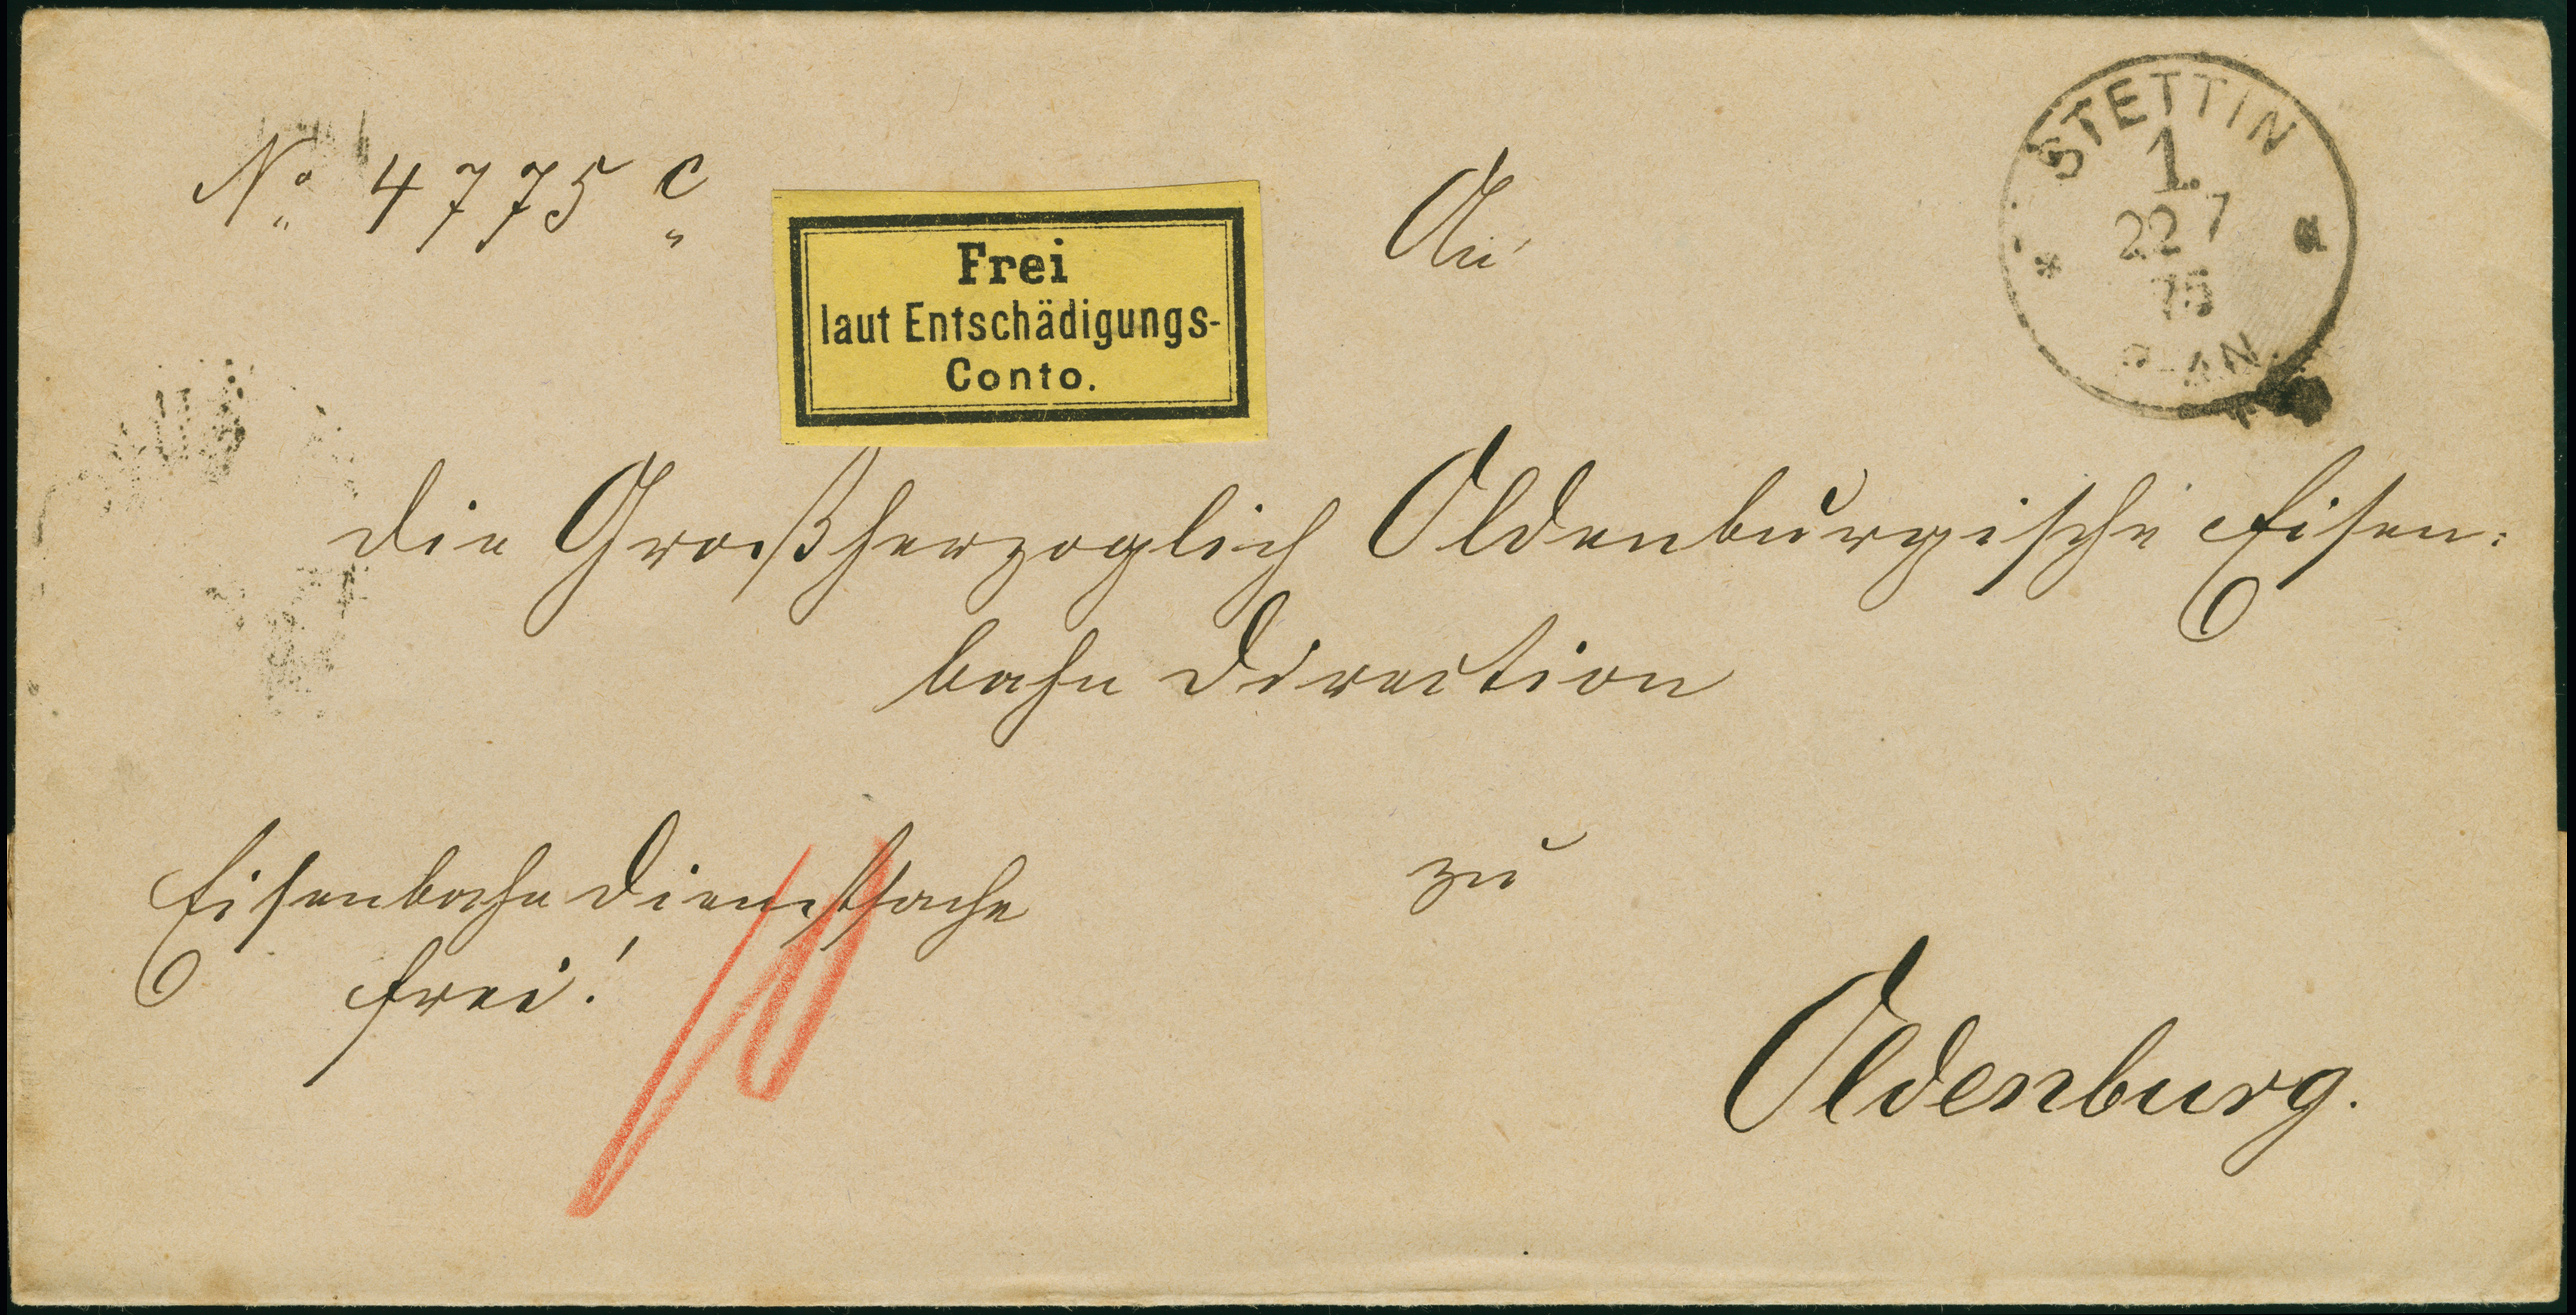 No 4775 c
Frei
laut Entschädigungs-
Conto.
An
STETTIN
1.
22 7
75
* a
die Großherzoglich Oldenburgische Eisen:
bahn Direction
Eisenbahn Dienstsache
frei!
10
zu
Oldenburg.